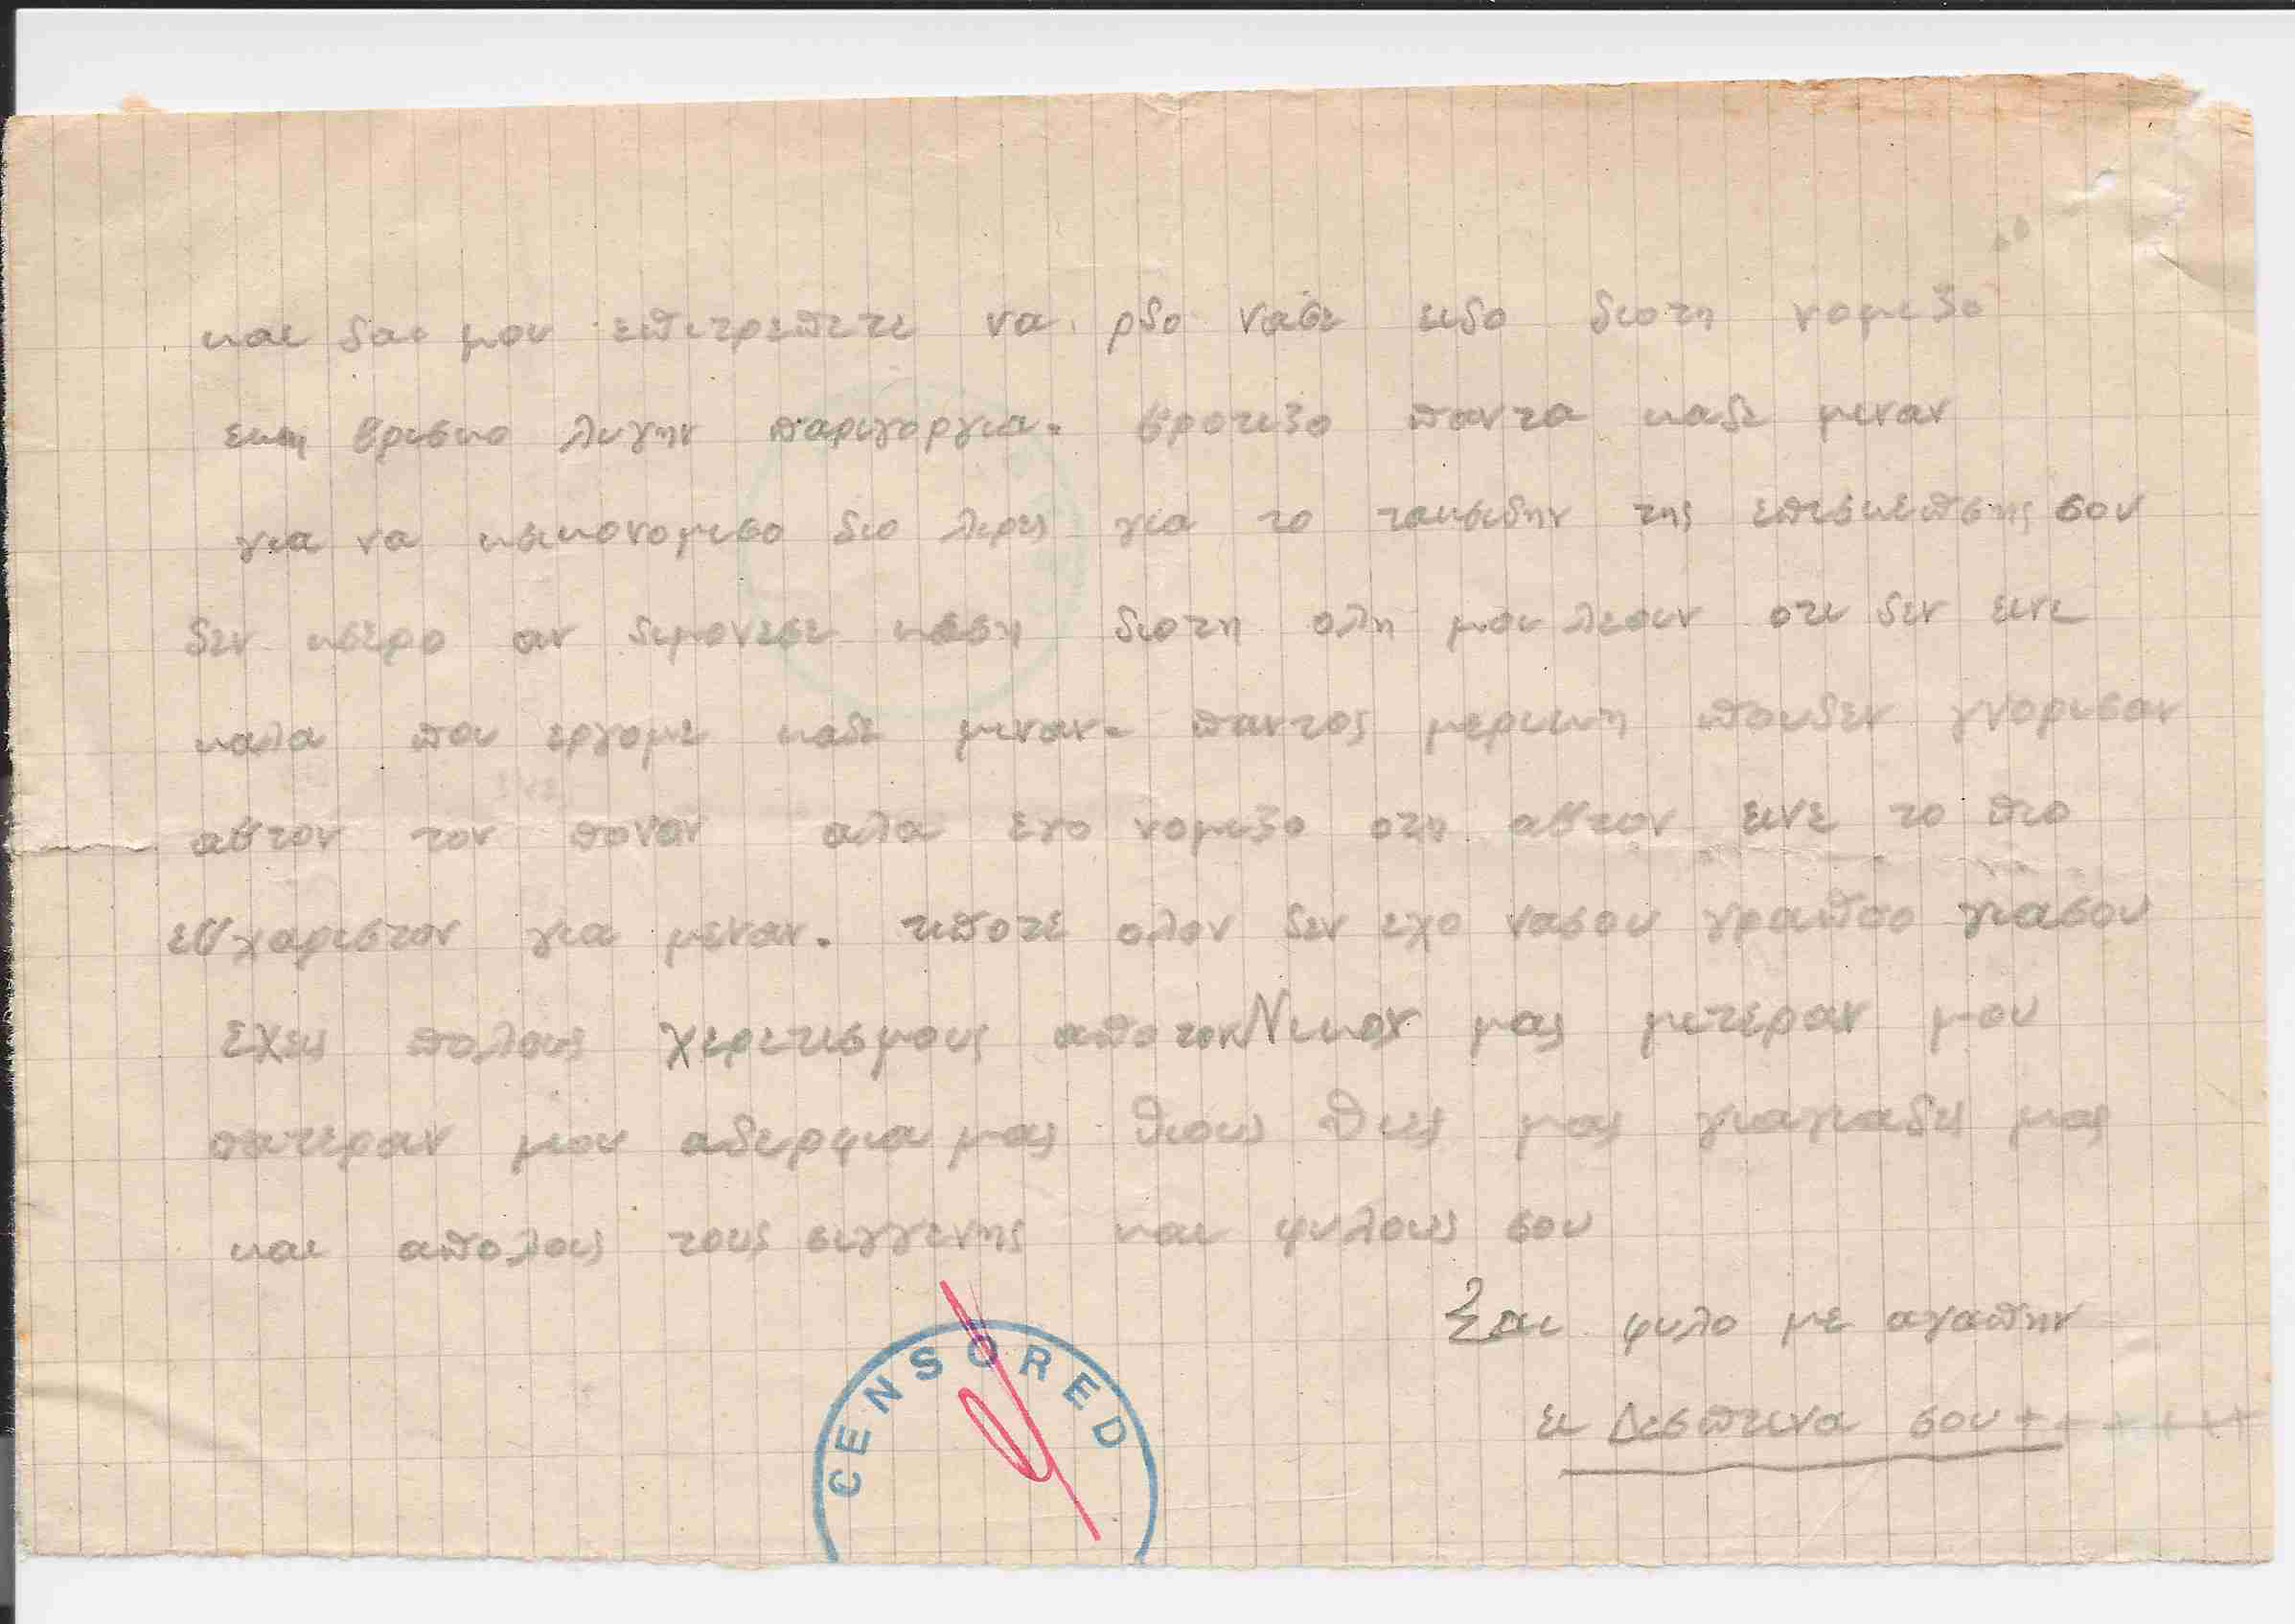 και δαι μου επιτρεπετε να ρδο νασε ειδο διοτη νομιζο
εκη βρισκο λιγην παριγοργια. φροτιζο παντα καδε μιναν
για να κσικονομισο διο λιρες για το ταικσιδην της επισκεπσης σου
δεν κσερο αν διμονεσε κεση διοτη ολη μου λεουν οτι δεν εινε
καλα που εργομε καδε μιναν. παντος μερικη που δεν γνορισαν
αβτον τον ποναν αλα εγο νομιζο οτη αβτον εινε το πιο
εβχαριστον για μεναν. τιποτε αλον δεν εχο νασου γραπσο γιασου
Εχεις πολους χερετισμους απο τον Νικον μας μιτεραν μου
πατεραν μου αδερφια μας θιους θιες μας γιαγιαδες μας
και απολους τους σιγγενης και φυλους σου
Σαι φυλο με αγαπην
ει Δεσπινα σου + + + + + +
CENSORED